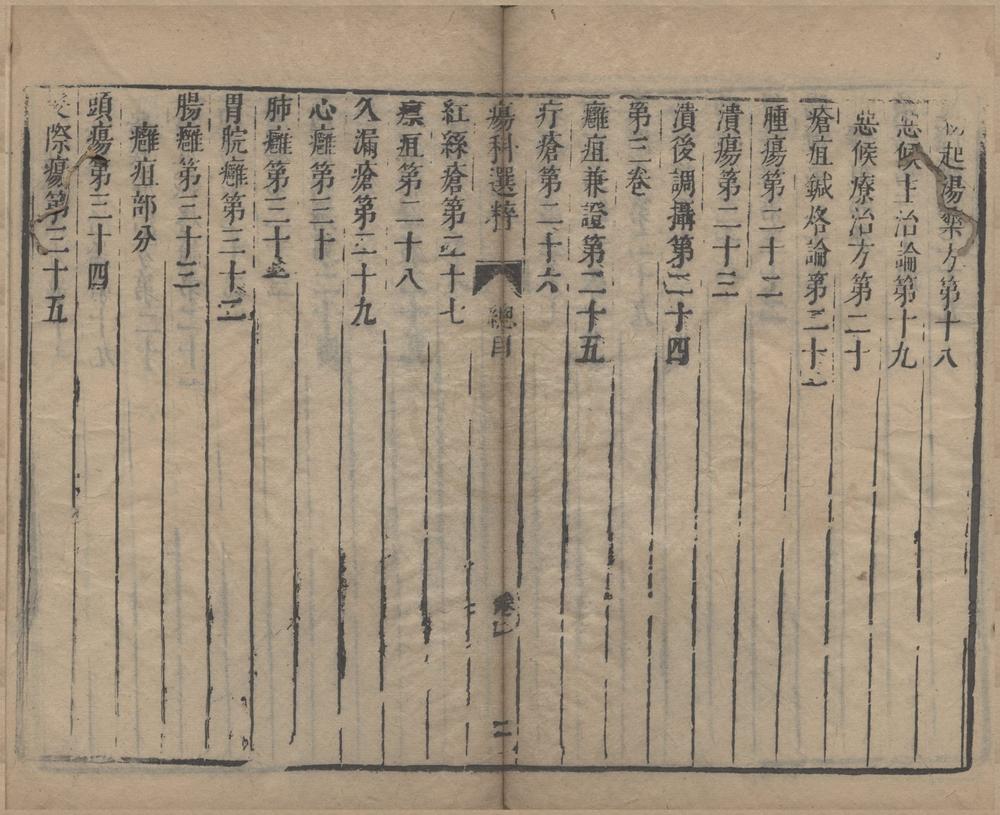 起瘍藥方第十八
惡候主治論第十九
惡候療治方第二十
瘡疽鍼烙論第二十一
腫瘍第二十二
潰瘍第二十三
潰後調攝第二十四
第三卷
癰疽兼證第二十五
疔瘡第二十六
瘍科選粹 總目 卷一 二
紅絲瘡第二十七
瘭疽第二十八
久漏瘡第二十九
心癰第三十
肺癰第三十一
胃脘癰第三十二
腸癰第三十三
癰疽部分
頭瘍第三十四
髮際瘍第三十五